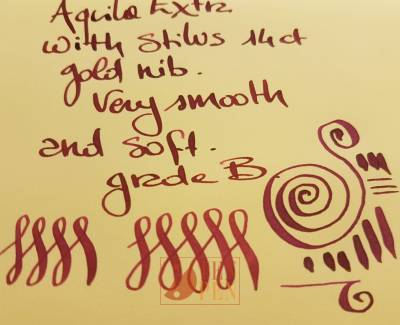 Aquila Extra
with Stilus 14ct
gold nib.
Very smooth
and soft.
grade B
PEN